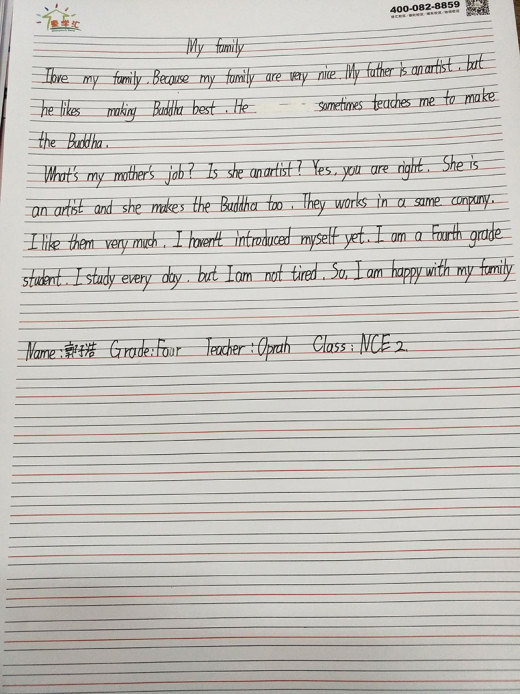 爱学汇
400-082-8859
My family
I love my family. Because my family are very nice. My father is an artist. but
he likes making Buddha best. He sometimes teaches me to make
the Buddha.
What's my mother's job? Is she an artist? Yes, you are right. She is
an artist and she makes the Buddha too. They works in a same conpuny.
I like them very much. I haven't introduced myself yet. I am a Fourth grade
student. I study every day. but I am not tired. So, I am happy with my family
Name: 郭子浩 Grade: Four Teacher: Oprah Class: NCE 2.